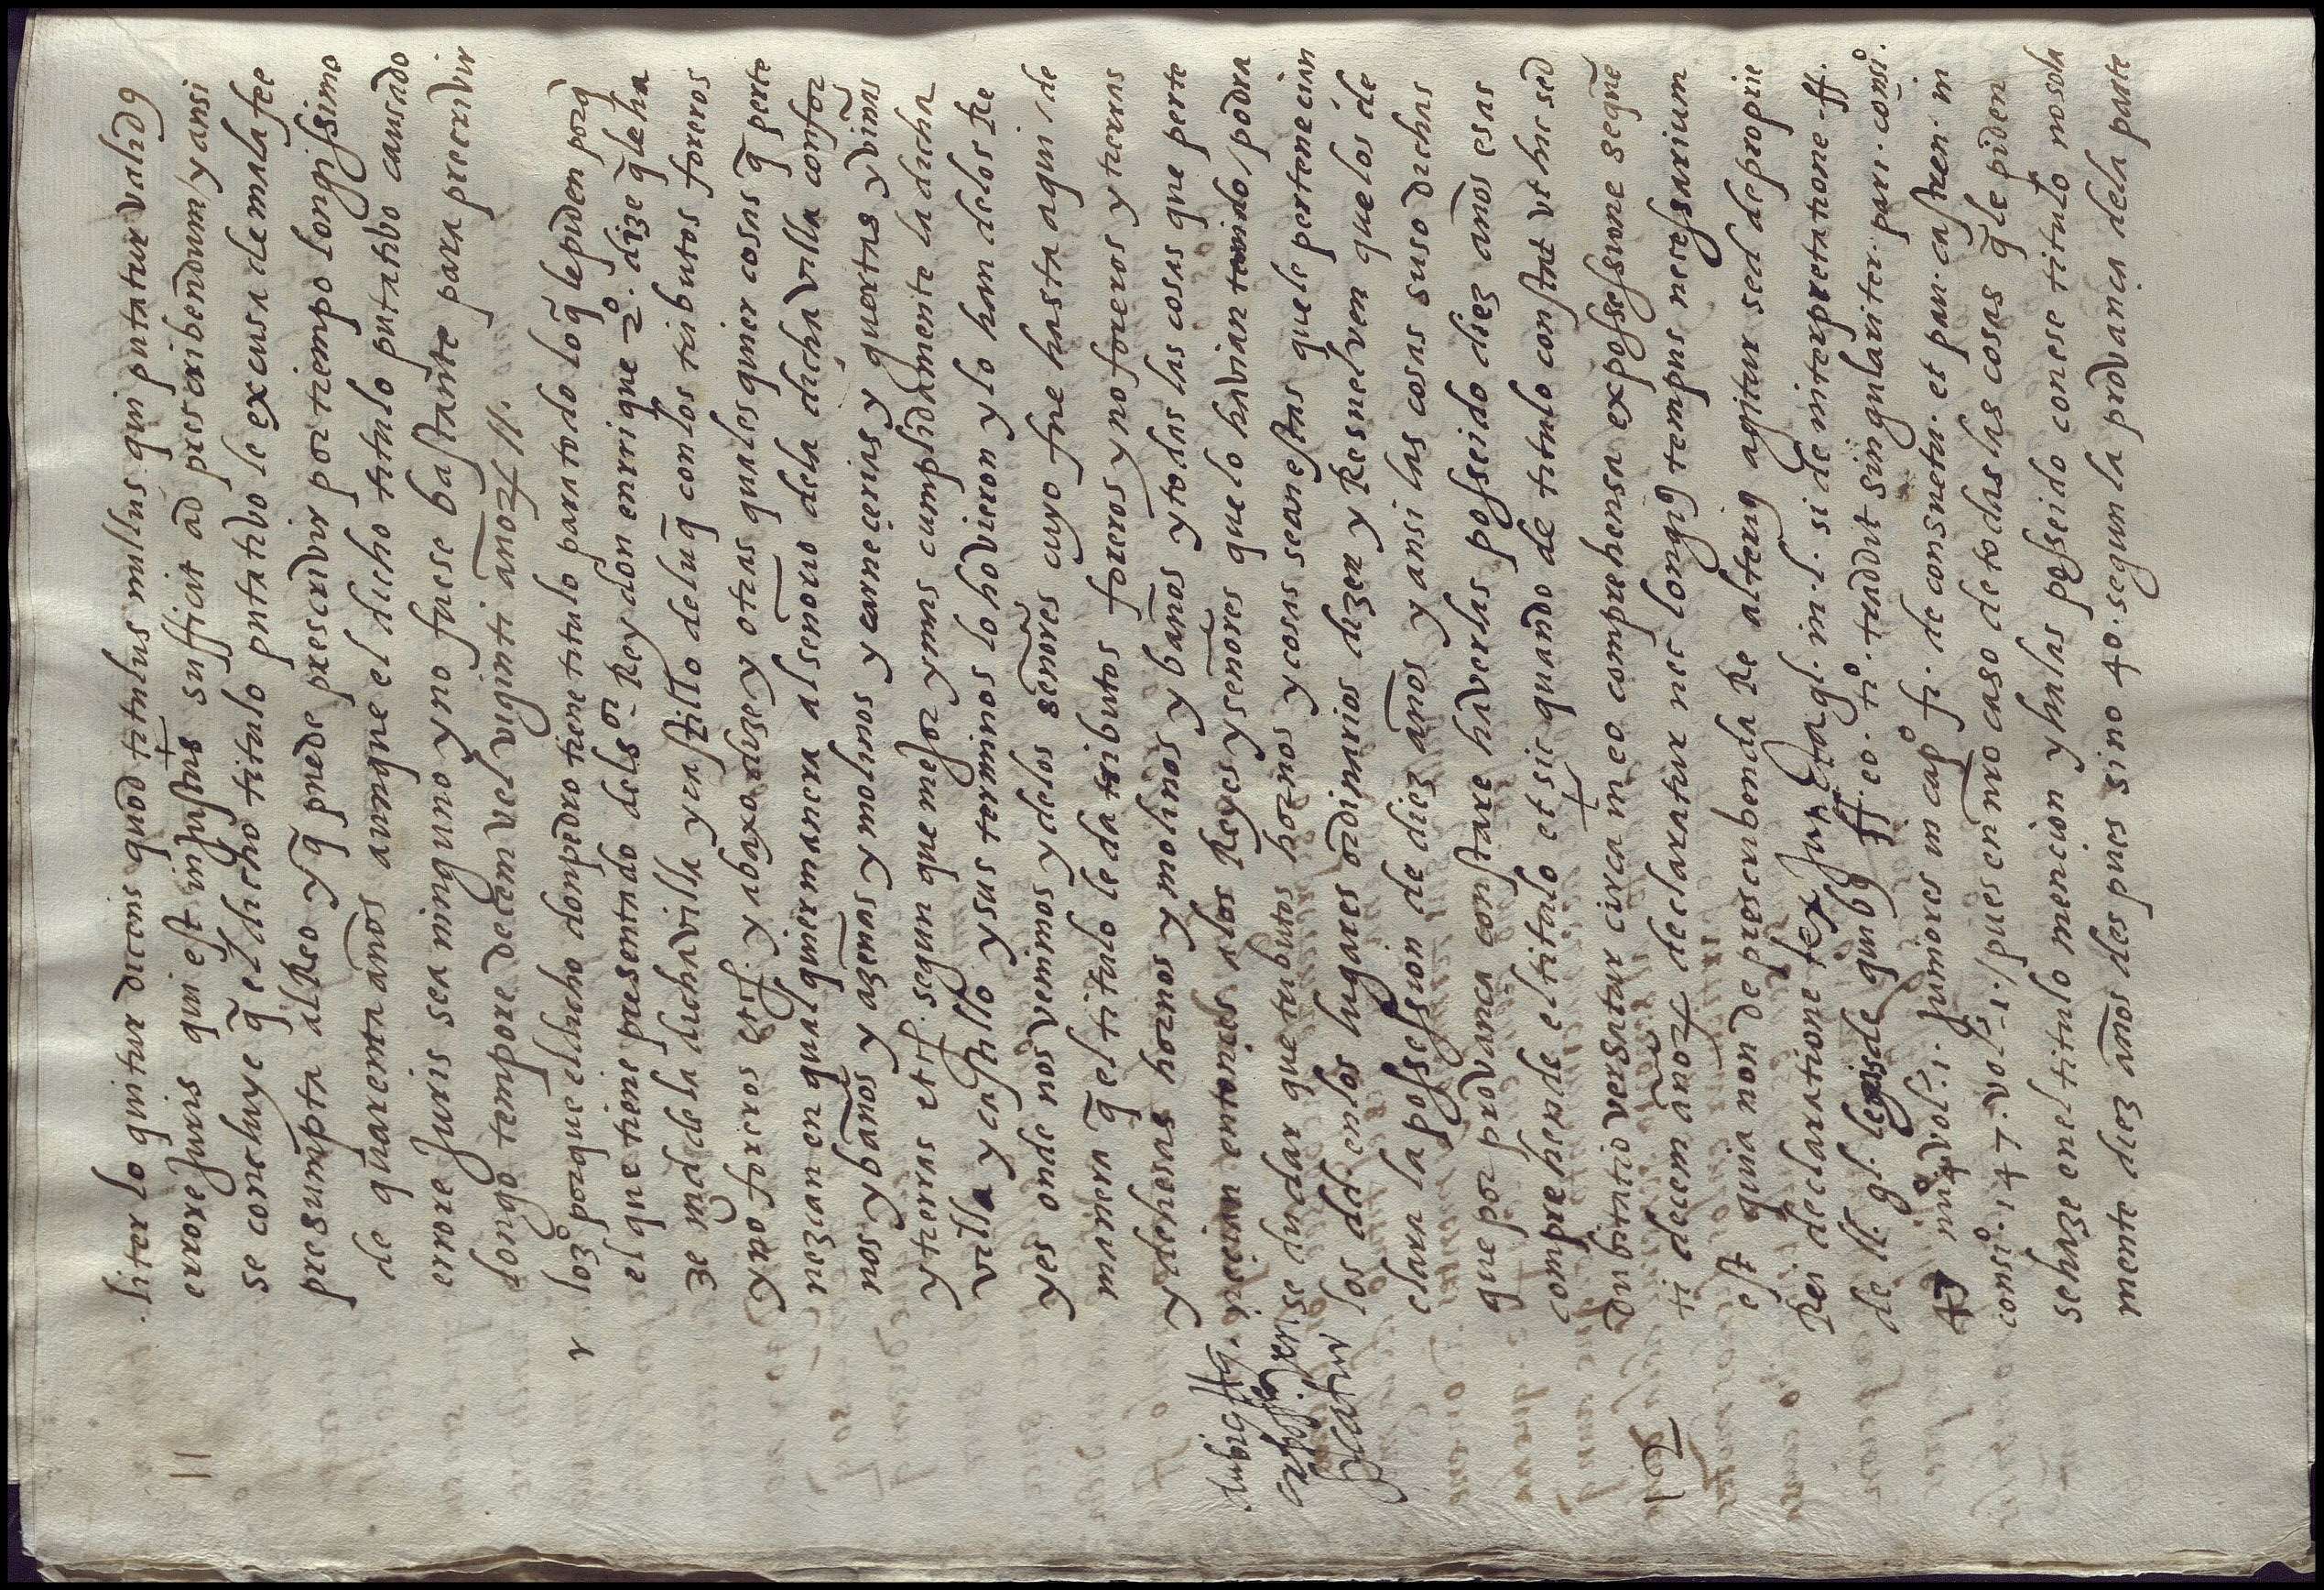 liter loquitur dicens quod titulus nullus qui putatur valid9
11
errore Juris qui est injustus sufficit ad prescribendum/y ansi
se concluye q̃ el dicho titulo putativo le excusa de mala fee
presumpta al Reo y q̃ puede prescrivir por tiempo longissimo
de quarenta años aunque el dicho titulo putativo causado
errore Juris sea ninguno y no fuese bastante para precrivir
longo tempore decem vel viginti anoꝝ //.
v lo 3º porque el dicho don pedro tiene titulo para todo lo q̃ le piden porq̃
el que tiene presentado del sor Rey don enrrique 2º. dize q̃ le ha
ze md de la dicha villa y castillo de luq̃ con los tributos foreros
y no foreros etcª. y abaxo dize y otras quales quier cosas q̃ perte
nezian en qual quier manera al señorio de la dicha villa con for
nos y baños y azeñas y molinos y carnecerias y guertas y viñas
y tierras etcª. segun que mejor y mas cumplidamente la dicha
villa y castillo y sus terminos lo hovieron y lo han de los Re
yes onde nos venimos y de los señores cuyo fue hasta aqui / de
manera q̃ el titulo le da tributos foreros y no foreros y tierras
y dehesas hornos y molinos y baños y todas las cosas que perte
necian entonces a los Reyes y señores que lo havian tenido / podra
se dudar que tributos hornos y cosas sean estas que le pertenecian
los dd en los lugares ordinarios dizen y Resuelven que los de
clara la possession de diez años y ansi las cosas suso dichas
que por provança constare haverlas posseido diez años esas
comprehende el titulo et sic quando de titulo constat ut hic sed
dubitatio versatur circa in eo comprehensa ex possessione seque
12
ti decem anoꝝ declaratur nec longi9 tempus nesessarium
est quia non de prescribenda Re alteri9 agitur sed de propie
Rei declaratione tex Juncta gl. in. l. si de interpretatione ff.
de ll. gl. legis de quib9 ff. eo. tiº. tradit singulariter. pari. consiº.
47 nuº 4 vol. 1. Juniores in capº fi. de consuetu. et pari. castren. in
consiº. 147. vol. 1. / pues en nro caso de todas las cosas q̃ le piden
se haze en el titulo mencion y halas posseido con ese titulo no sola
mente diez años despues sino 40. segun la provança de la parte